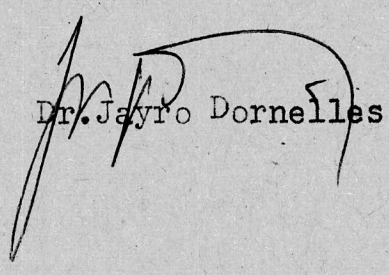 Dr.Jayro Dornelles